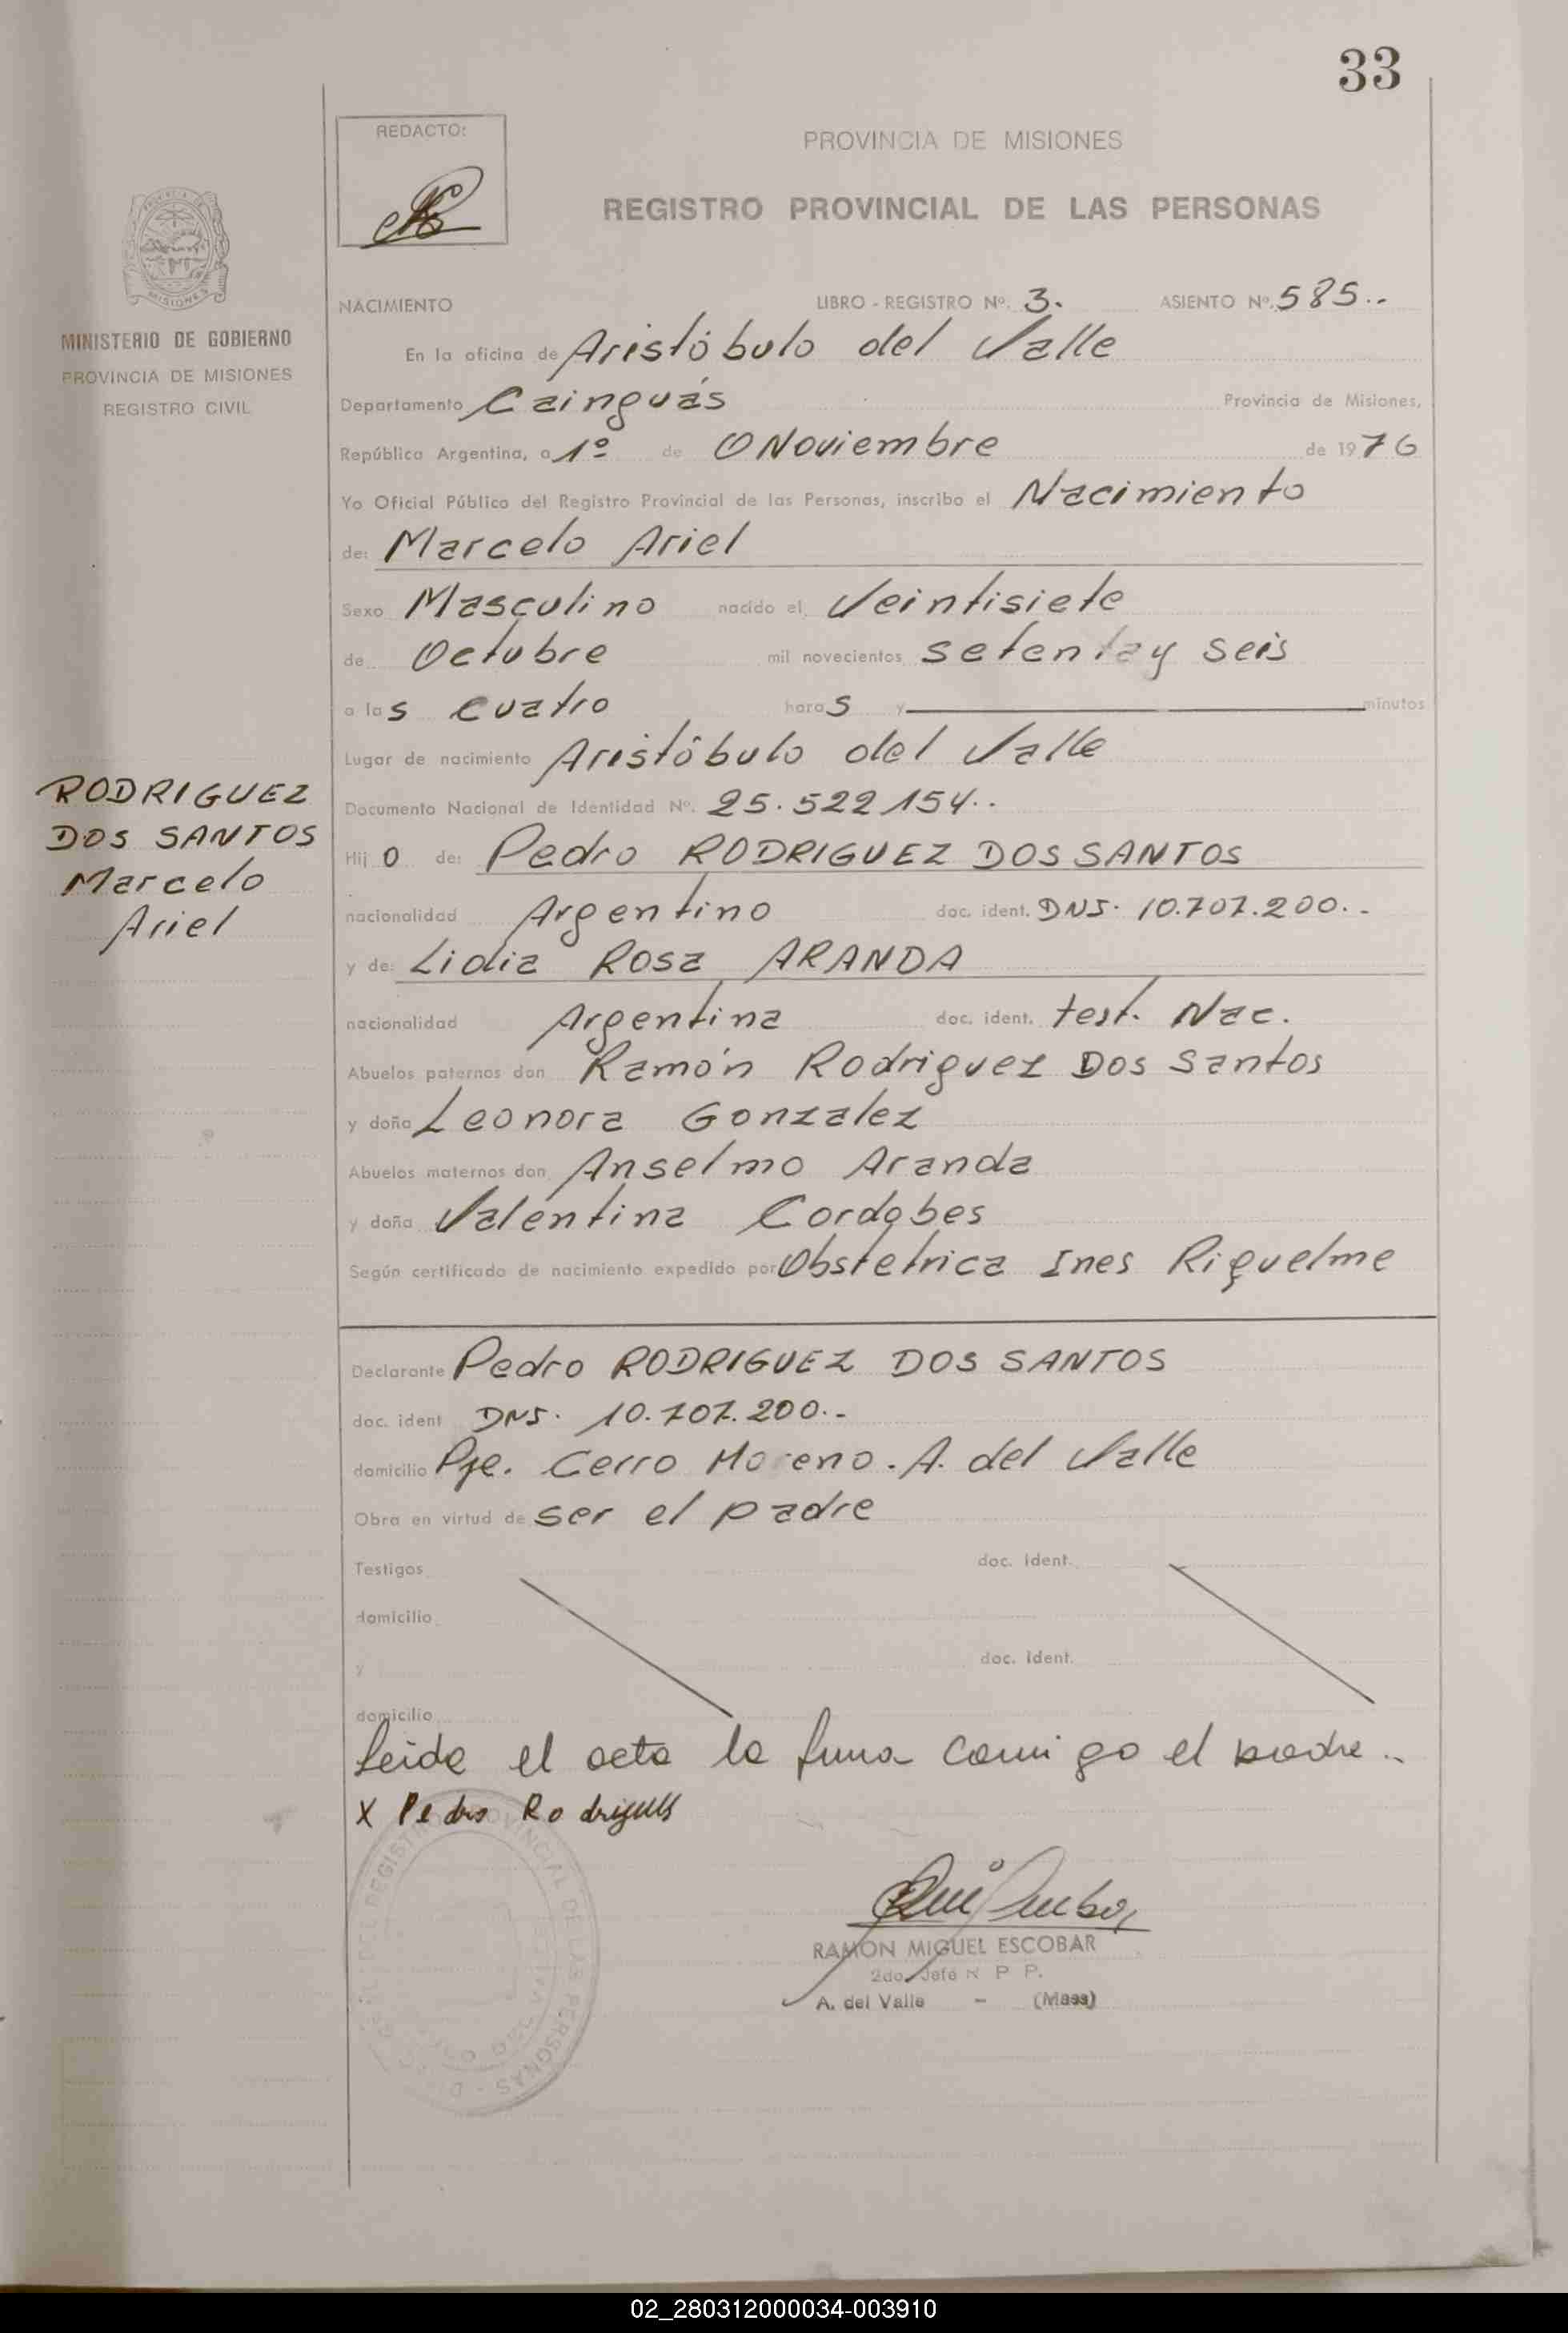 33
REDACTO:
PROVINCIA DE MISIONES
REGISTRO PROVINCIAL DE LAS PERSONAS
MINISTERIO DE GOBIERNO
PROVINCIA DE MISIONES
REGISTRO CIVIL
NACIMIENTO LIBRO - REGISTRO Nº. 3. ASIENTO Nº. 585..
En la oficina de Aristóbulo del Valle
Departamento Cainguás Provincia de Misiones,
República Argentina, a 1º de Noviembre de 1976
Yo Oficial Público del Registro Provincial de las Personas, inscribo el Nacimiento
de: Marcelo Ariel
Sexo Masculino nacido el Veintisiete
de Octubre mil novecientos setenta y seis
a las cuatro horas y minutos
Lugar de nacimiento Aristóbulo del Valle
RODRIGUEZ
DOS SANTOS
Marcelo
Ariel
Documento Nacional de Identidad Nº. 25.522154..
Hijo de: Pedro RODRIGUEZ DOS SANTOS
nacionalidad Argentino doc. ident. DNI. 10.707.200..
y de: Lidia Rosa ARANDA
nacionalidad Argentina doc. ident. test. Nac.
Abuelos paternos don Ramón Rodriguez Dos Santos
y doña Leonora Gonzalez
Abuelos maternos don Anselmo Aranda
y doña Valentina Cordobes
Según certificado de nacimiento expedido por Obstetrica Ines Riquelme
Declarante Pedro RODRIGUEZ DOS SANTOS
doc. ident DNI. 10.707.200..
domicilio Pje. Cerro Moreno. A. del Valle
Obra en virtud de ser el padre
Testigos doc. ident.
domicilio
y doc. ident.
domicilio
Leida el acta la firma conmigo el padre..
X Pedro Rodrigues
RAMON MIGUEL ESCOBAR
2do. Jefe R P P.
A. del Valle - (Mnes)
02_280312000034-003910